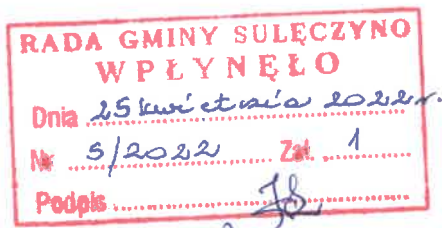 RADA GMINY SULĘCZYNO
WPŁYNĘŁO
Dnia 25 kwietnia 2022 r.
Nr 5/2022 Zał. 1
Podpis